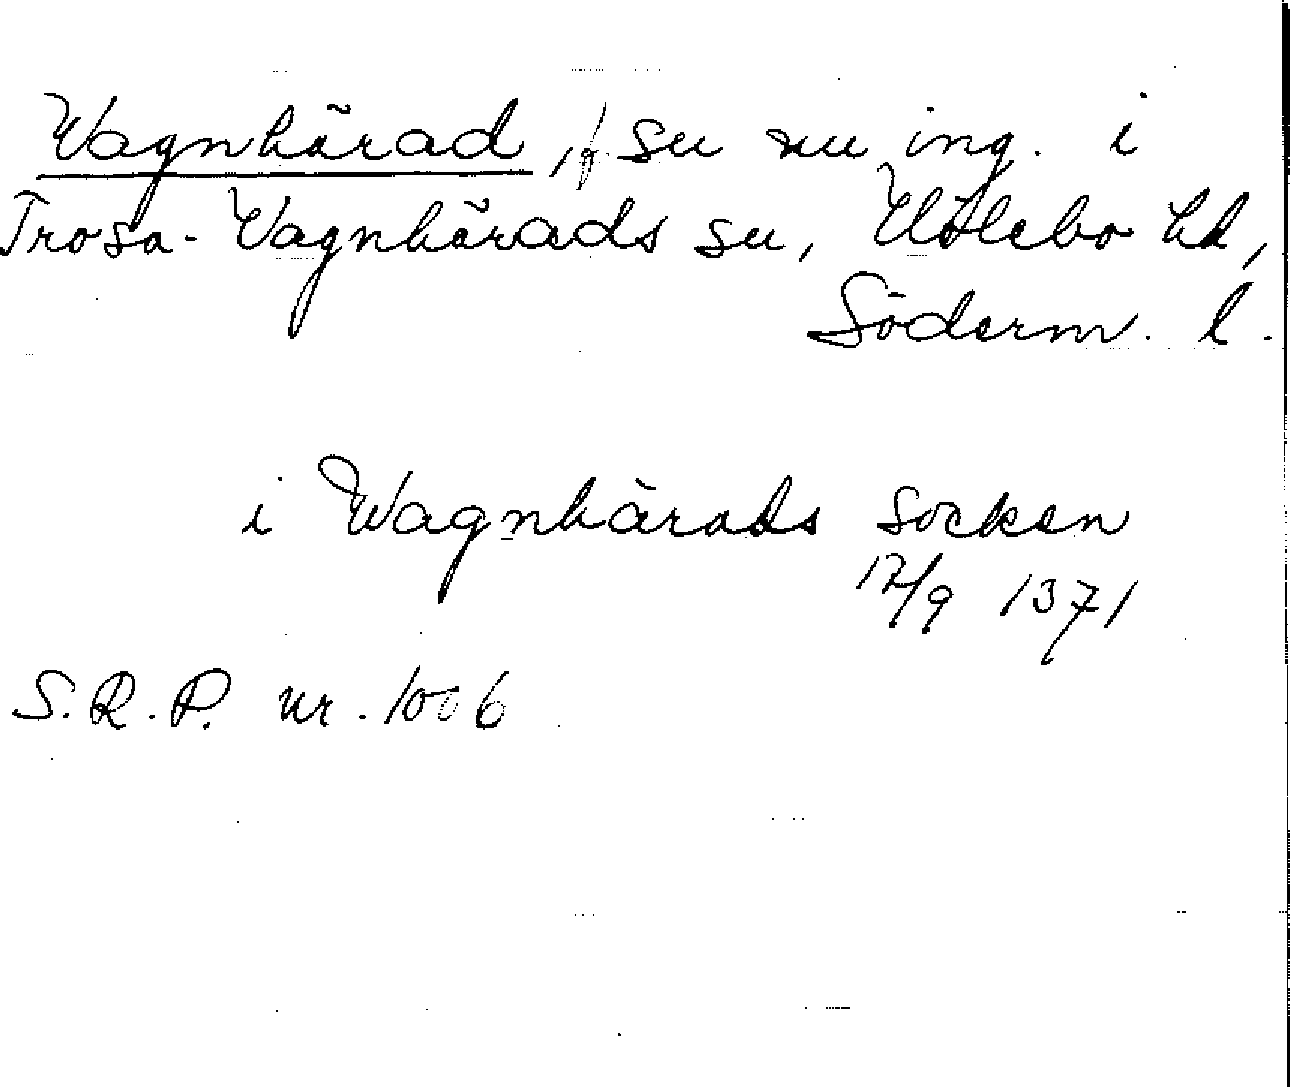 Vagnhärad, f. sn nu ing. i
Trosa-Vagnhärads sn, Hölebo hd,
Söderm. l.
i Wagnhärads socken
12/9 1371
S.R.P. nr. 1006